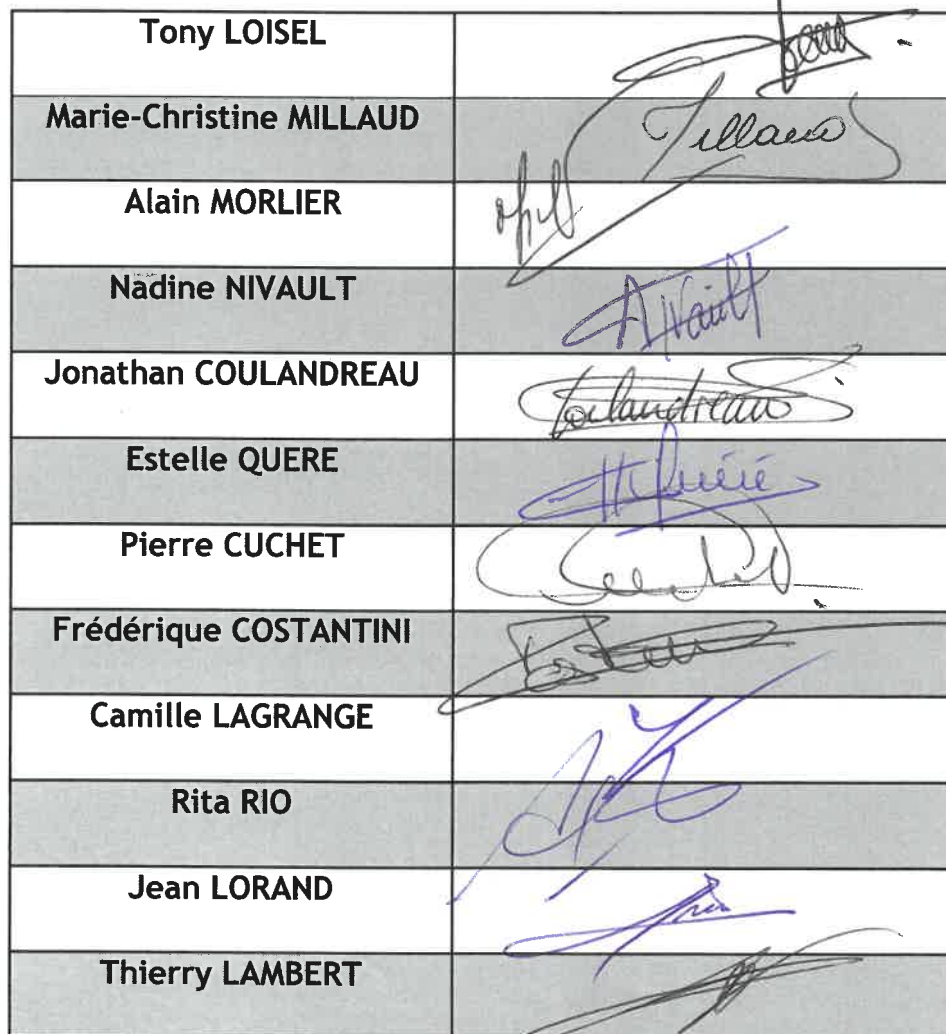 Tony LOISEL
Marie-Christine MILLAUD Millaud
Alain MORLIER
Nadine NIVAULT Nivault
Jonathan COULANDREAU Coulandreau
Estelle QUERE Quéré
Pierre CUCHET
Frédérique COSTANTINI
Camille LAGRANGE
Rita RIO
Jean LORAND
Thierry LAMBERT